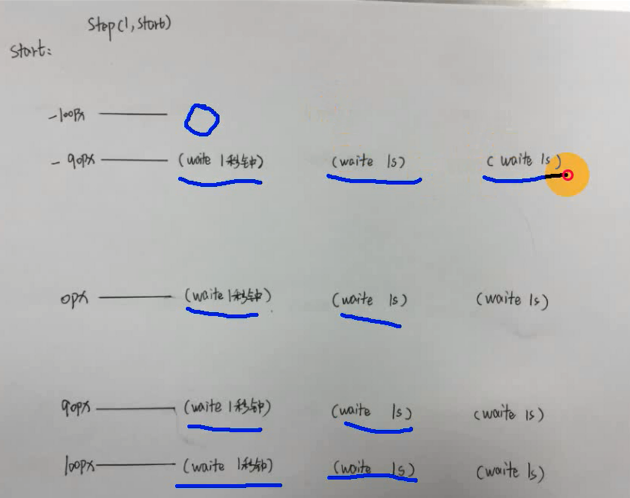 Step(1,start)
Start:
-100px
-90px (waite 1秒钟) (waite 1s) (waite 1s)
0px (waite 1秒钟) (waite 1s) (waite 1s)
90px (waite 1秒钟) (waite 1s) (waite 1s)
100px (waite 1秒钟) (waite 1s) (waite 1s)